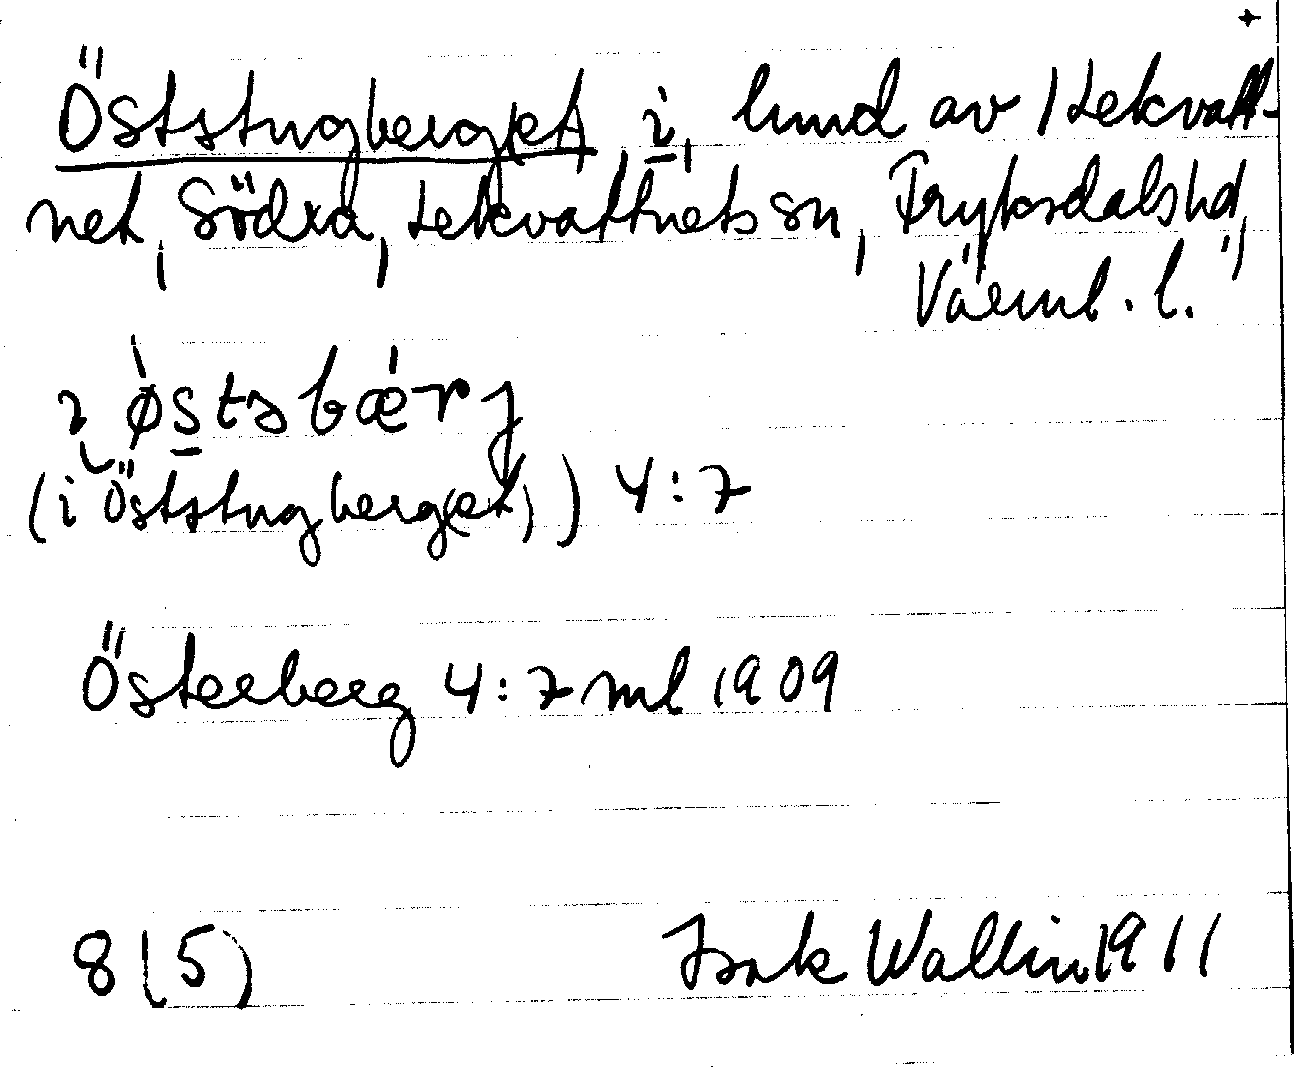 +
Öststugberg(et), i, lund av 1 Lekvatt-
net, Södra, Lekvattnets sn, Fryksdals hd,
Värml. l.
ı østsbærj
(i Öststugberg(et)) 4:7
Österberg 4:7 ml 1909
8 (5) Isak Wallin 1911